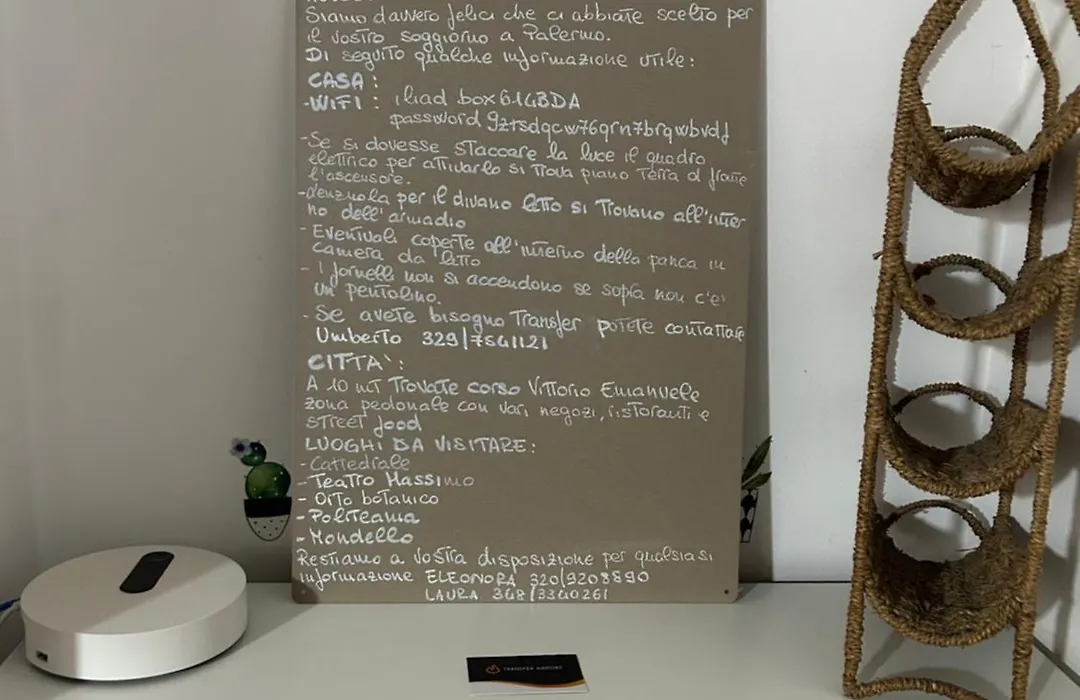 Siamo davvero felici che ci abbiate scelto per
il vostro soggiorno a Palermo.
Di seguito qualche informazione utile:
CASA:
-WIFI: iliad box614BDA
password 9zrsdqcw76qrn7brqwbvdj
-Se si dovesse staccare la luce il quadro
elettrico per attivarlo si trova piano terra di fronte
l'ascensore.
-Lenzuola per il divano letto si trovano all'inter
no dell'armadio
- Eventuali coperte all'interno della panca in
camera da letto
- I fornelli non si accendono se sopra non c'e'
un pentolino.
- Se avete bisogno Transfer potete contattare
Umberto 329/7541121
CITTA':
A 10 mt Trovate corso Vittorio Emanuele
zona pedonale con vari negozi, ristoranti e
street food
LUOGHI DA VISITARE:
- Cattedrale
- Teatro Massimo
- Orto botanico
- Politeama
- Mondello
Restiamo a Vostra disposizione per qualsiasi
informazione ELEONORA 320/9208890
LAURA 348/3340261